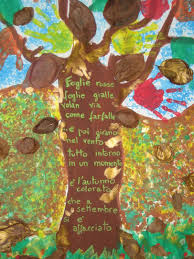 Foglie rosse
foglie gialle
volan via
come farfalle
e poi girano
nel vento
tutto intorno
in un momento
è l'autunno
colorato
che a
settembre
si è
affacciato